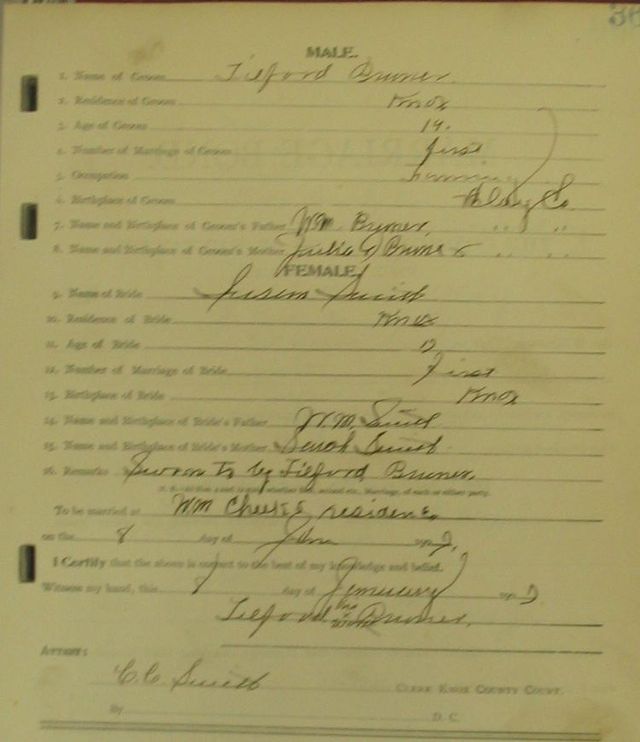 MALE.
1. Name of Groom Tilford Bruner
2. Residence of Groom Knox
3. Age of Groom 19.
4. Number of Marriage of Groom first
5. Occupation farming
6. Birthplace of Groom Clay Co.
7. Name and Birthplace of Groom's Father Wm Bruner, " "
8. Name and Birthplace of Groom's Mother Julia Bruner " "
FEMALE.
9. Name of Bride Smith
10. Residence of Bride Knox
11. Age of Bride
12. Number of Marriage of Bride First
13. Birthplace of Bride Knox
14. Name and Birthplace of Bride's Father W.M. Smith
15. Name and Birthplace of Bride's Mother Sarah Smith
16. Remarks Sworn to by Tilford Bruner.
To be married at Wm Cheeks residence
on the 8 day of Jan
I Certify that the above is correct to the best of my knowledge and belief.
Witness my hand, this day of January
Tilford Bruner.
ATTEST:
C.C. Smith CLERK KNOX COUNTY COURT.
By D. C.